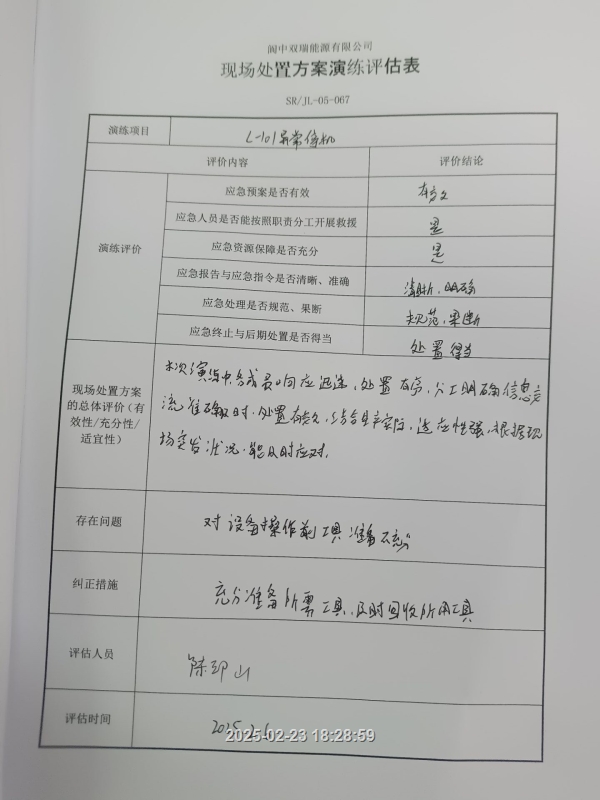 阆中双瑞能源有限公司
现场处置方案演练评估表
SR/JL-05-067
演练项目 L-101异常停机
评价内容 评价结论
演练评价
应急预案是否有效 有效
应急人员是否能按照职责分工开展救援 是
应急资源保障是否充分 是
应急报告与应急指令是否清晰、准确 清晰、明确
应急处理是否规范、果断 规范、果断
应急终止与后期处置是否得当 处置得当
现场处置方案
的总体评价（有
效性/充分性/
适宜性）
本次演练中各成员响应迅速，处置有序，分工明确信息交
流准确及时，处置有效，结合生产实际，适应性强，根据现
场突发状况，能及时应对。
存在问题 对设备操作前工具准备不充分
纠正措施 充分准备所需工具，及时回收所用工具
评估人员 陈
山
评估时间 2025.2.
2025-02-23 18:28:59